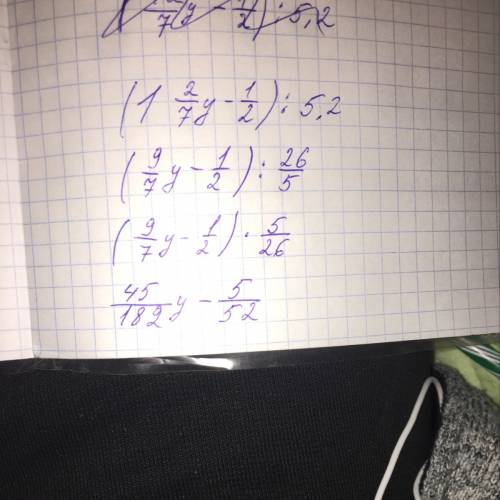 (1 2/7 y - 1/2) : 5,2
(9/7 y - 1/2) : 26/5
(9/7 y - 1/2) · 5/26
45/182 y - 5/52